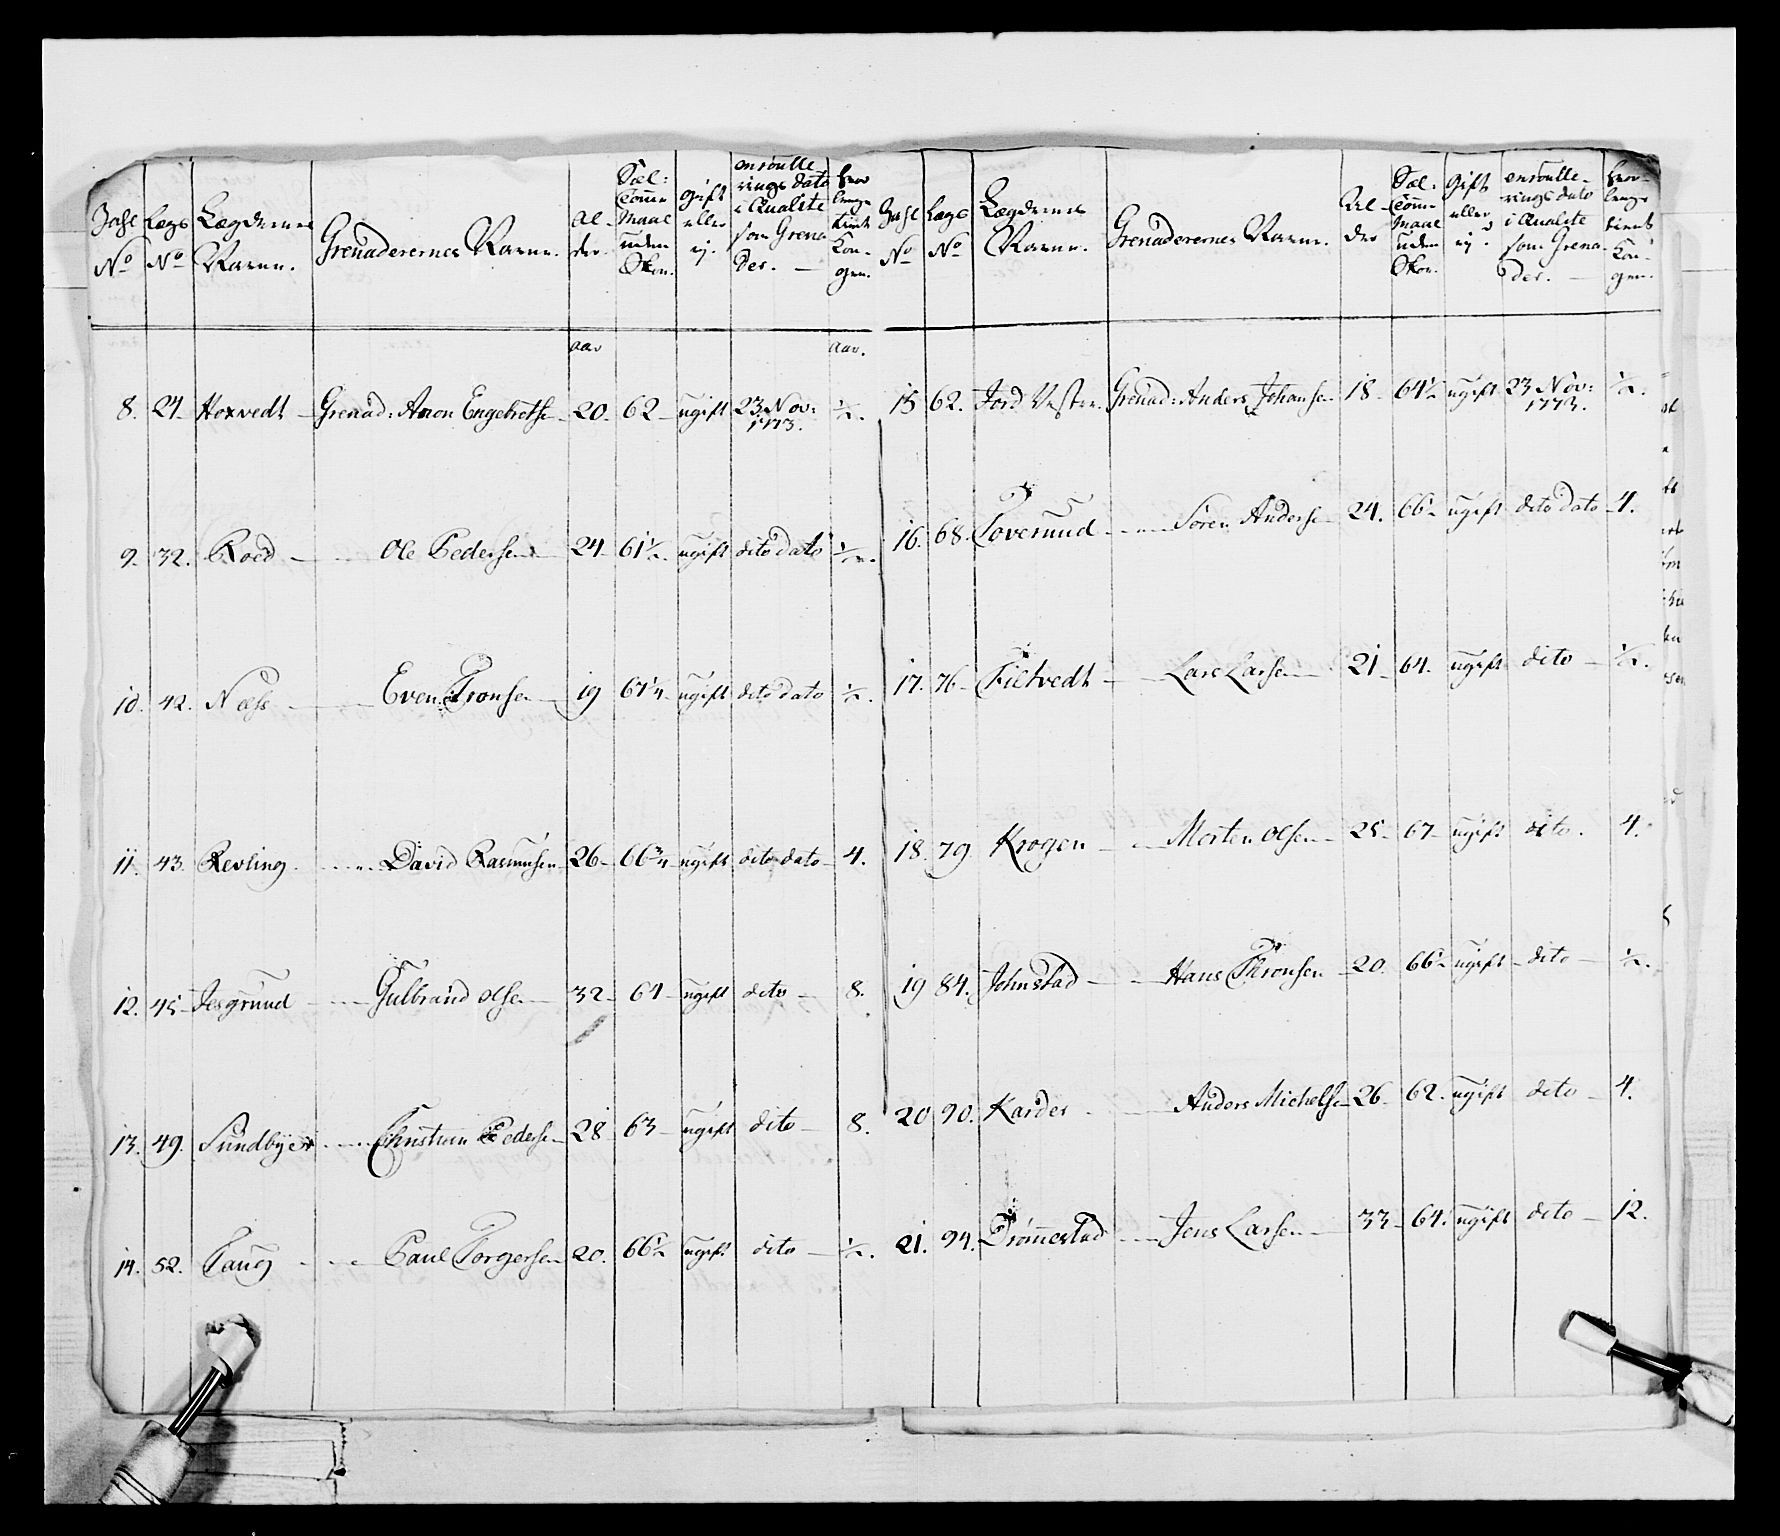 Zahl No | Lægs No | Lægdernes Navne. | Grenaderernes Navne. | Al-der. | Sæl: Tomme Maal uden Skoe. | Gift eller ej. | enroulle rings dato i Qualite som Grena der. — | hvor længe tient Kon-gen.
aar | aar.
8. | 24. | Hoxvedt | Grenad: Amon Engebretse | 20. | 62 | ugift | 23 Nov: 1773. | ½.
9. | 32. | Roed | Ole Pedersen | 24 | 61½ | ugift | dito dato | ½.
10. | 42. | Næss | Even Tronsen | 19 | 61¼ | ugift | dito dato | ½.
11. | 43. | Revling | David Rasmusen | 26 | 66¾ | ugift | dito dato | 4.
12. | 45 | Jesgrund | Gulbrand Olsen | 32 | 64 | ugift | dito | 8.
13. | 49. | Sundbye | Christian Pederse | 28 | 63 | ugift | dito | 8.
14. | 52. | Haug | Paul Torgersen | 20. | 66½ | ugift | dito | ½.
Zahl No | Lægs No | Lægdernes Navne. | Grenaderernes Navne. | Al-der | Sæl: Tomme Maal uden Skoe. | Gift eller ej. | enroulle-rings dato i Qualite som Grena der. — | hvor-længe tient Kon-gen.
15 | 62. | Jord Vestre | Grenad: Anders Johansen | 18 | 64½ | ugift | 23 Nov: 1773. | ½.
16. | 68. | Toverud | Sören Anderse | 24. | 66½ | ugift | dito dato | 4.
17. | 76 | Fietvedt | Lars Larsen | 21 | 64. | ugift | dito | ½.
18. | 79 | Krogen | Morten Olsen | 25 | 67 | ugift | dito. | 4.
19 | 84. | Johnstad | Hans Thronsen | 20. | 66½ | ugift | dito | ½.
20 | 90. | Karder | Anders Michelse | 26 | 62. | ugift | dito | 4.
21. | 94. | Drömestad | Jens Larsen | 33 | 64. | ugift | dito | 12.